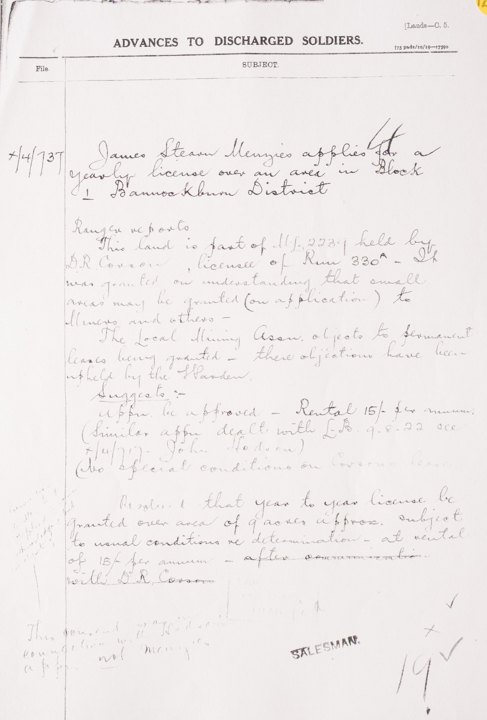 (Lands—C. 5.
ADVANCES TO DISCHARGED SOLDIERS.
File.
SUBJECT.
x/4/737
James Stearn Menzies applies for a
yearly license over an area in Block
1 Bannockburn District
Ranger reports
This land is part of held by
D R Corson, licensee of Run 330A - It
was granted on understanding that small
areas may be granted (on application) to
Miners and others -
The Local Mining Assn. objects to permanent
leases being granted - these objections have been
upheld by the Warden.
Suggests :-
appn. be approved - Rental 15/- per annum.
(Similar appn dealt with L.B. 9.8.22 see
x/4/717 - John Hodson)
(No special conditions on Corsons lease
that year to year license be
granted over area of 9 acres approx. subject
to usual conditions re determination - at rental
of 15/- per annum - after
with D.R. Corson
This
with
appn not Menzies
SALESMAN.
19